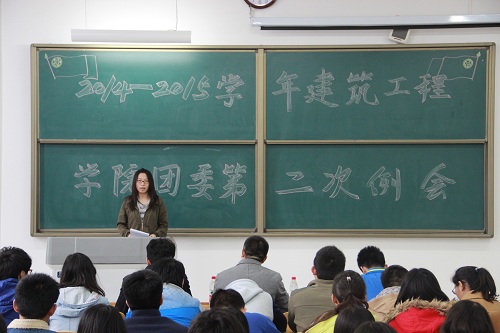 2014—2015学年建筑工程
学院团委第二次例会